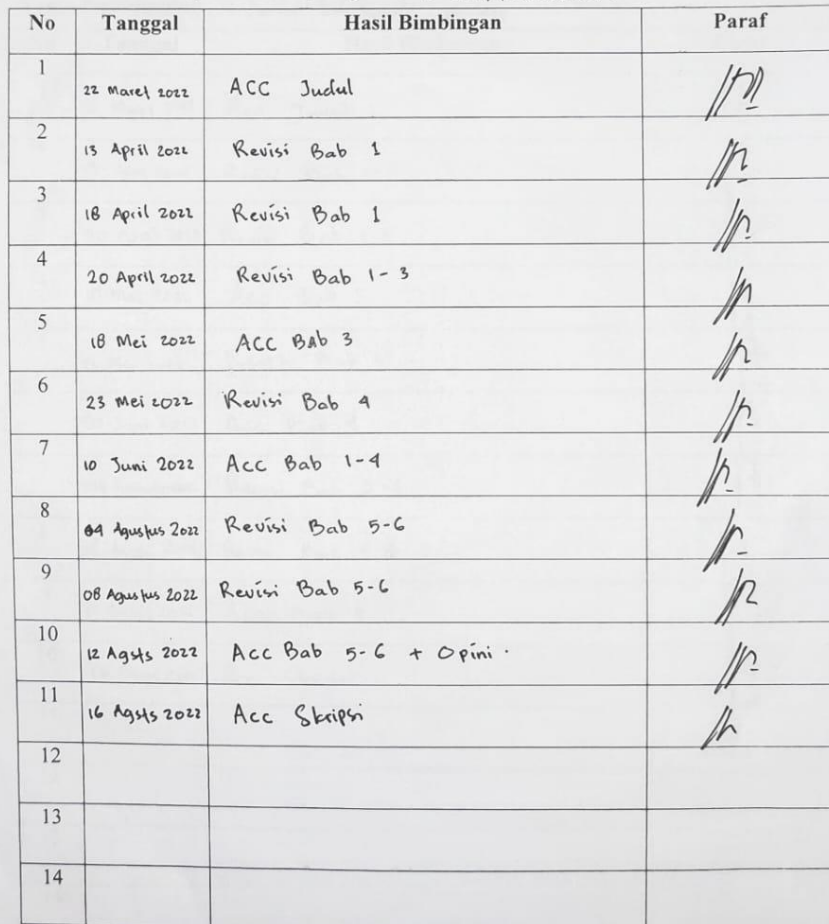 No Tanggal Hasil Bimbingan Paraf
1 22 Maret 2022 ACC Judul
2 13 April 2022 Revisi Bab 1
3 18 April 2022 Revisi Bab 1
4 20 April 2022 Revisi Bab 1-3
5 18 Mei 2022 ACC BAb 3
6 23 Mei 2022 Revisi Bab 4
7 10 Juni 2022 Acc Bab 1-4
8 04 Agustus 2022 Revisi Bab 5-6
9 08 Agustus 2022 Revisi Bab 5-6
10 12 Agsts 2022 Acc Bab 5-6 + Opini.
11 16 Agsts 2022 Acc Skripsi
12
13
14